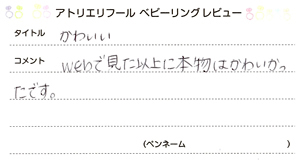 アトリエリフール ベビーリングレビュー
タイトル かわいい
コメント webで見た以上に本物はかわいかっ
たです。
(ペンネーム )